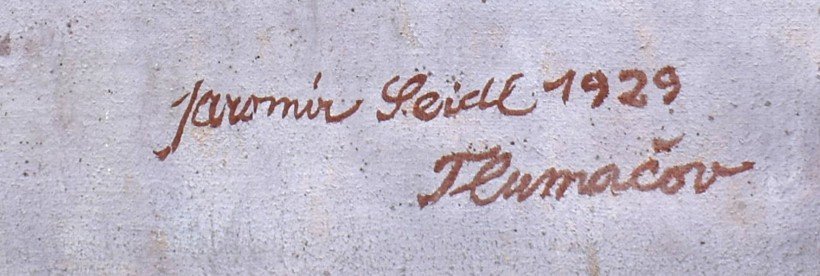 Jaromír Seidl 1929
Tlumačov